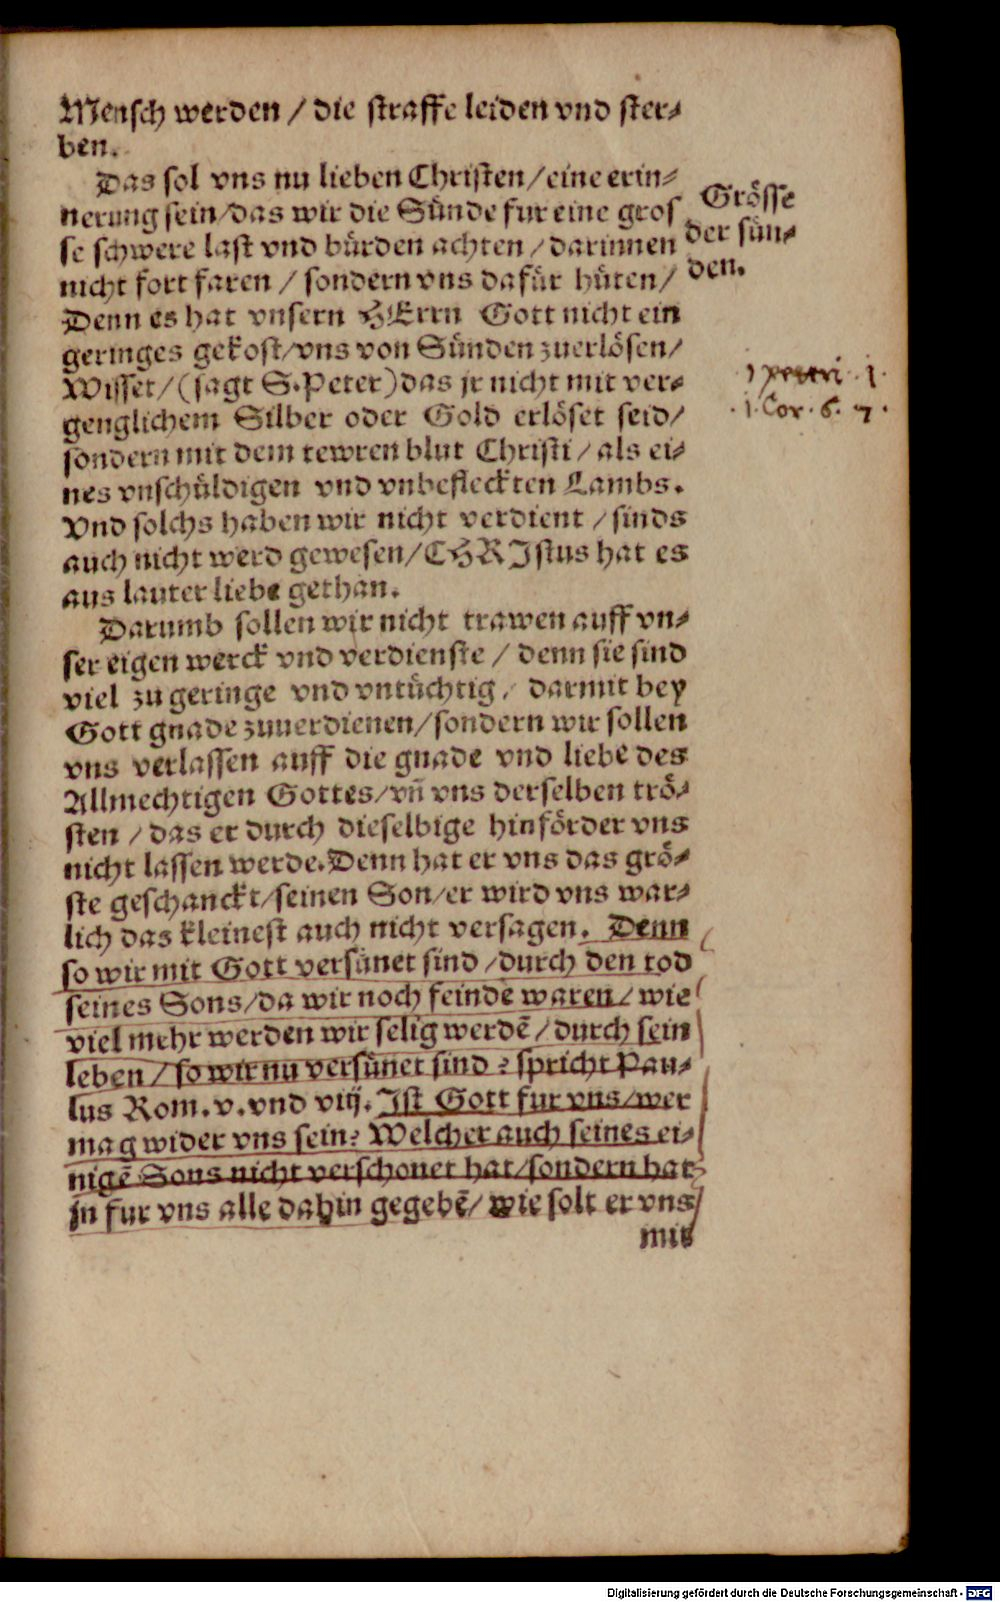 Mensch werden / die straffe leiden vnd ster⸗
ben.
Das sol vns nu lieben Christen / eine erin⸗
nerung sein / das wir die Sünde fur eine gros
se schwere last vnd bürden achten / darinnen
nicht fort faren / sondern vns dafür hüten /
Denn es hat vnsern HErrn Gott nicht ein
geringes gekost / vns von Sünden zuerlösen /
Wisset / (sagt S. Peter) das jr nicht mit ver⸗
genglichem Silber oder Gold erlöset seid /
sondern mit dem tewren blut Christi / als ei⸗
nes vnschüldigen vnd vnbefleckten Lambs.
Vnd solchs haben wir nicht verdient / sinds
auch nicht werd gewesen / CHRIstus hat es
aus lauter liebe gethan.
Darumb sollen wir nicht trawen auff vn⸗
ser eigen werck vnd verdienste / denn sie sind
viel zu geringe vnd vntüchtig / darmit bey
Gott gnade zuuerdienen / sondern wir sollen
vns verlassen auff die gnade vnd liebe des
Allmechtigen Gottes / vn̄ vns derselben trö⸗
sten / das er durch dieselbige hinförder vns
nicht lassen werde. Denn hat er vns das grö⸗
ste geschanckt / seinen Son / er wird vns war⸗
lich das kleinest auch nicht versagen. Denn
so wir mit Gott versünet sind / durch den tod
seines Sons / da wir noch feinde waren / wie
viel mehr werden wir selig werdē / durch sein
leben / so wir nu versünet sind? spricht Pau⸗
lus Rom. v. vnd viij. Ist Gott fur vns / wer
mag wider vns sein? Welcher auch seines ei⸗
nigē Sons nicht verschonet hat / sondern hat
jn fur vns alle dahin gegebē / wie solt er vns
mit
Grösse
der sün⸗
den.
1 petri 1.
1. Cor. 6. 7.
Digitalisierung gefördert durch die Deutsche Forschungsgemeinschaft - DFG